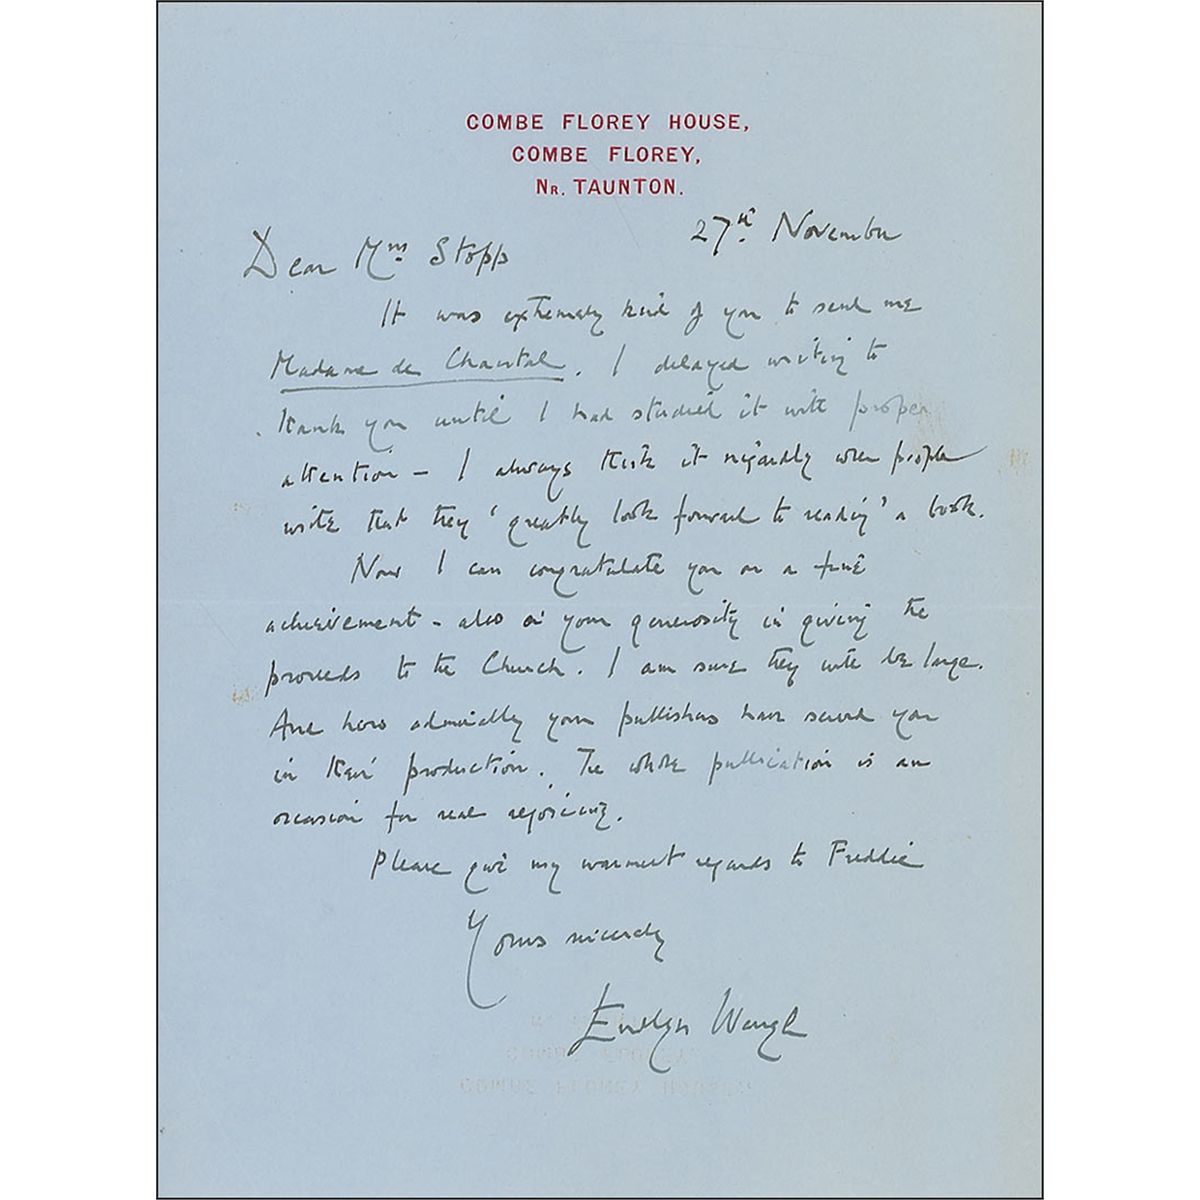 COMBE FLOREY HOUSE,
COMBE FLOREY,
Nr. TAUNTON.
27th November
Dear Mrs. Stopp
It was extremely kind of you to send me
Madame de Chantal. I delayed writing to
thank you until I had studied it with proper
attention – I always think it niggardly when people
write that they 'greatly look forward to reading' a book.
Now I can congratulate you on a fine
achievement – also on your generosity in giving the
proceeds to the Church. I am sure they will be large.
And how admirably your publishers have served you
in their production. The whole publication is an
occasion for real rejoicing.
Please give my warmest regards to Freddie
Yours sincerely
Evelyn Waugh